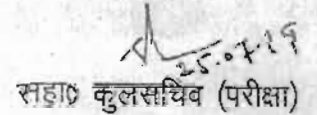 25.07.19
सहा० कुलसचिव (परीक्षा)